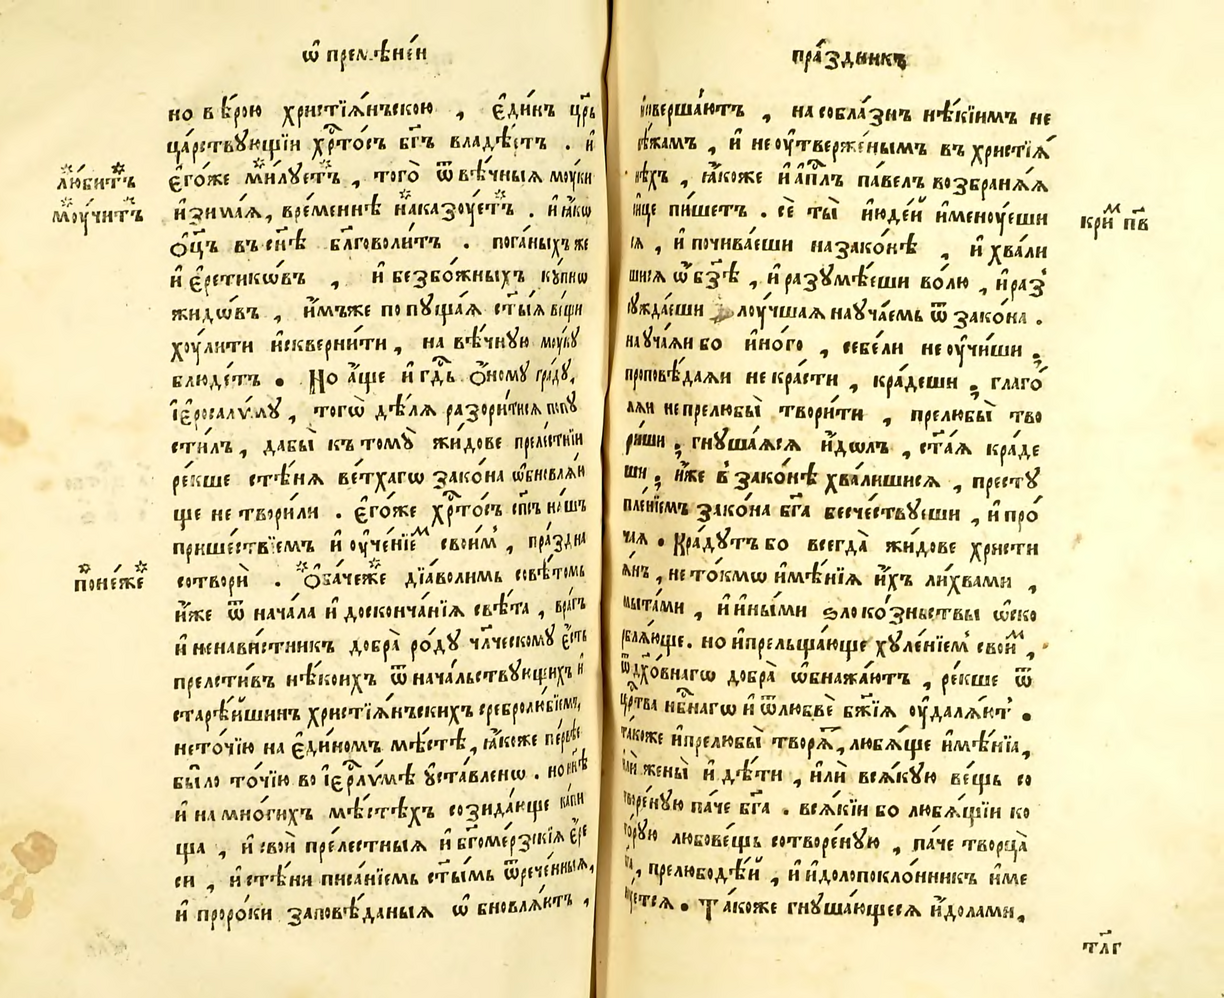 ѡ҆ премѣне́и
но вѣ́рою христїѧ́нъскою , є҆ди́нъ цр҃ь
ца́рствующїи хр҇то́съ бг҃ъ владѣ́етъ . и҆
є҆го́же ми́луетъ , того̀ ѿ вѣ́чныѧ мꙋ́ки
и҆зима́ѧ, вре́меннѣ нака́зоуетъ . и҆ ꙗ҆́кѡ
ѻ҆ц҃ъ въ сн҃ѣ блг҃оволи́тъ . пога́ныхъ же
и҆ є҆ретикѡ́въ , и҆ безбо́жныхъ кꙋ́пнѡ
жидѡ́въ , и҆̀мъже попꙋща́ѧ ст҃ы́ѧ ве́щи
хоу́лити и҆ скверни́ти , на вѣ́чнꙋю моу́кꙋ
блюде́тъ . Но а҆́ще и҆ гд҇ь ѻ҆́номꙋ гра́дꙋ,
і҆еросали́мꙋ , тогѡ̀ дѣ́лѧ разори́тисѧ попꙋ
сти́лъ , дабы̀ к томꙋ̀ жи́дове преле́стнїи
ре́кше стѣ́нѧ ве́тхагѡ зако́на ѡ҆бновлѧ́и
ще не твори́ли . є҆го́же хр҇то́съ сп҃съ на́шъ
прише́ствїемъ и҆ оу҆че́нїем свои́м , пра́здна
сотворѝ . Ѻ҆ба́чеже дїа́волимъ совѣ́томъ
и҆́же ѿ нача́ла и҆ до сконча́нїѧ свѣ́та , вра́гъ
и҆ ненави́стникъ добра̀ ро́дꙋ чл҃ческомꙋ є҆́сть
прелсти́въ нѣ́коихъ ѿ нача́льствꙋющихъ и҆
старѣ́йшинъ христїѧ́нъскихъ сребролю́бїемъ,
не то́чїю на є҆ди́номъ мѣ́стѣ , ꙗ҆́коже пе́рвѣе
бы́ло то́чїю во і҆ер҇ли́мѣ ᲂу҆ста́вленѡ . но нн҃ѣ
и҆ на мно́гихъ мѣ́стѣхъ созида́юще ка́пи
ща , и҆ своѝ преле́стныѧ и҆ бг҃оме́рзскїѧ є҆́ре
си , и҆ стѣ́ни писа́нїемъ ст҃ы́мъ ѿре́ченныѧ,
и҆ проро́ки заповѣ́даныѧ ѡ҆бновлѧ́ютъ ,
лю́битъ
мо́учитъ
поне́же
пра́здникъ
соверша́ютъ , на собла́знъ нѣ́кїимъ не
вѣ́жамъ , и҆ не оу҆тверже́нымъ въ христїѧ́
нѣхъ , ꙗ҆́коже и҆ а҆п҇лъ па́велъ возбранѧ́ѧ
сице пи́шетъ . сѐ ты̀ і҆юде́й и҆менꙋ́еши
сѧ , и҆ почива́еши на зако́нѣ , и҆ хвали
шисѧ ѡ҆ бз҃ѣ , и҆ разꙋмѣ́еши во́лю , и҆ раз
сꙋжда́еши лоу́чшаѧ наꙋча́емь ѿ зако́на .
наꙋча́ѧи бо и҆но́го , себе́ли не оу҆чи́ши ;
проповѣ́даѧи не кра́сти , кра́деши ; глаго́
лѧи не прелюбы̀ твори́ти , прелюбы̀ тво
ри́ши ; гнꙋша́ѧсѧ и҆́дѡлъ , ст҃а́ѧ кра́де
ши ; и҆́же в зако́нѣ хвали́шисѧ , престꙋ
пле́нїемъ зако́на бг҃а бесче́ствꙋеши , и҆ про́
чаѧ . Кра́дꙋтъ бо всегда̀ жи́дове христи
ѧ́нъ , не то́кмѡ и҆мѣ́нїѧ и҆́хъ ли́хвами ,
мы́тами , и҆ и҆ны́ми ѕлоко́знъствы ѡ҆ско
рблѧ́юще . но и҆ прельща́юще хꙋле́нїем свои́м ,
ѿ дх҃о́внагѡ добра̀ ѡ҆бнажа́ютъ , ре́кше ѿ
цр҇тва нб҃нагѡ и҆ ѿ любвѐ бж҃їѧ оу҆далѧ́ют .
та́коже и҆ прелюбы̀ творѧ́т , любѧ́ще и҆мѣ́нїа ,
и҆лѝ жены̀ и҆ дѣ́ти , и҆лѝ всѧ́кꙋю ве́щь со
творе́нꙋю па́че бг҃а . всѧ́кїи бо любѧ́щїи ко
то́рꙋю любо ве́щь сотворе́нꙋю , па́че творца̀
бг҃а , прелюбодѣ́й , и҆ и҆долопокло́нникъ и҆ме
нꙋ́етсѧ . Та́коже гнꙋша́ющесѧ и҆́долами ,
к ри́м пв҃
тл҃г